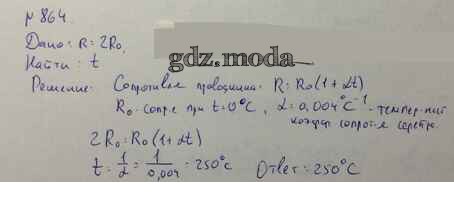 № 864.
Дано: R = 2R₀.
gdz.moda
Найти: t
Решение: Сопротивление проводника: R = R₀(1 + αt)
R₀ - сопр-е при t = 0°C, α = 0,004°C⁻¹ - темпер-ный
коэффиц сопрот-е серебра.
2R₀ = R₀(1 + αt)
t = 1/α = 1/0,004 = 250°C Ответ: 250°C